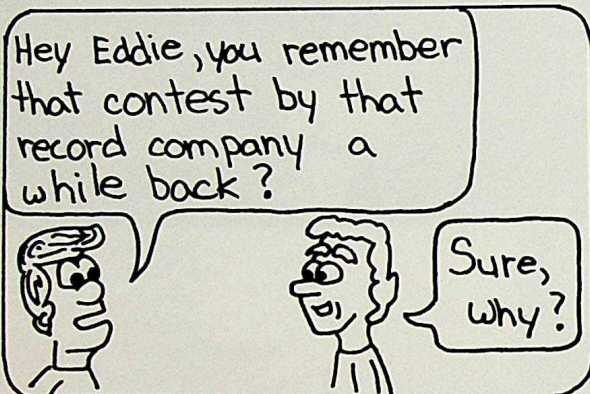 Hey Eddie, you remember
that contest by that
record company a
while back?
Sure,
why?